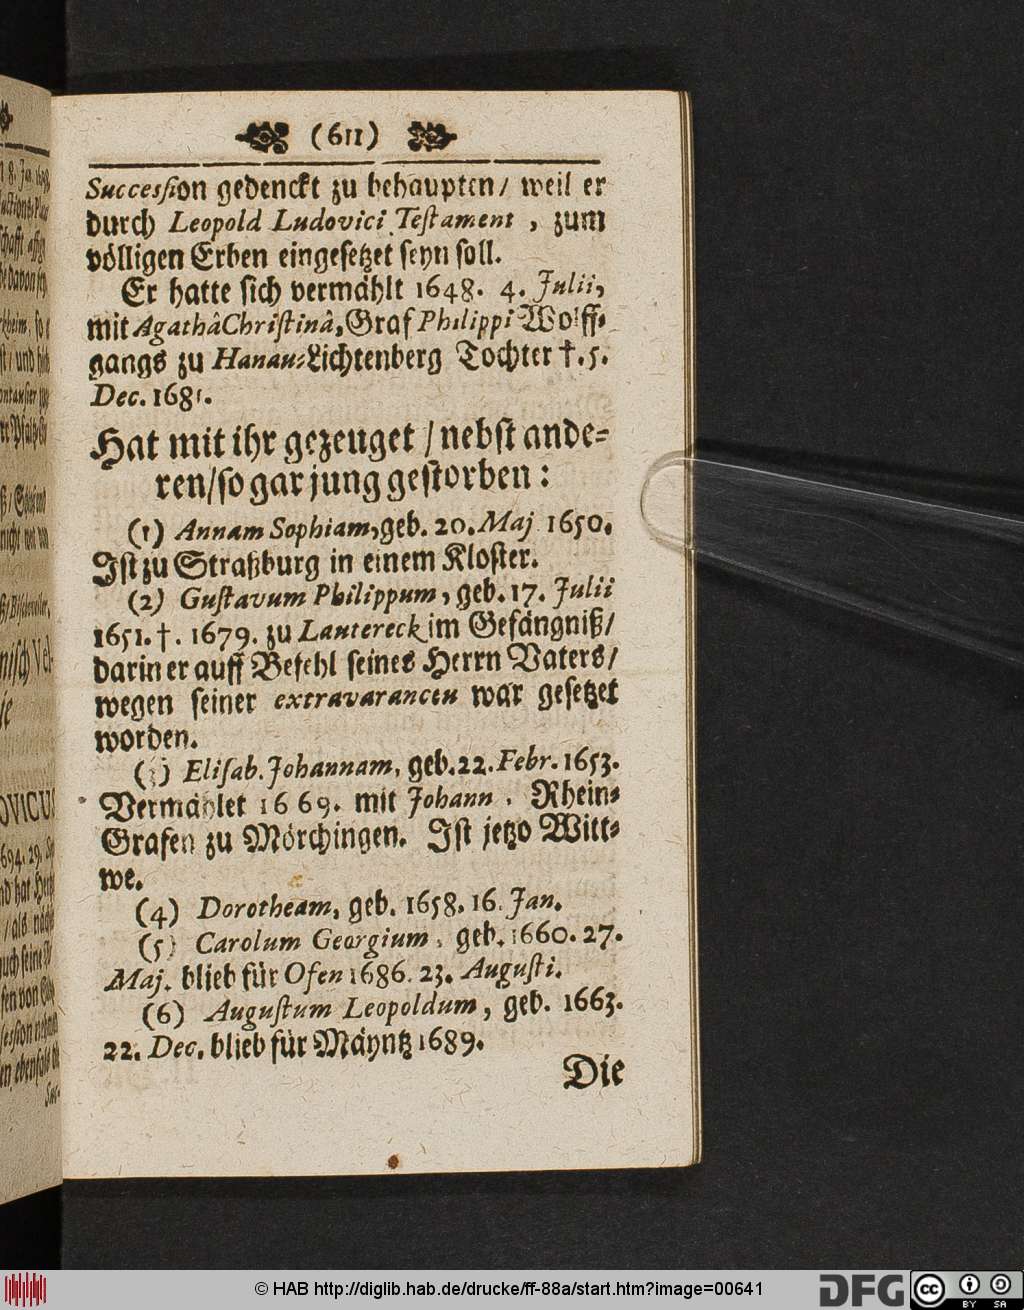 (611)
Succesſion gedenckt zu behaupten/ weil er
durch Leopold Ludovici Teſtament , zum
völligen Erben eingeſetzet ſeyn ſoll.
Er hatte ſich vermählt 1648. 4. Julii,
mit Agathâ Chriſtinâ, Graf Philippi Wolff-
gangs zu Hanau-Lichtenberg Tochter †. 5.
Dec. 1681.
Hat mit ihr gezeuget / nebſt ande-
ren/ ſo gar jung geſtorben:
(1) Annam Sophiam, geb. 20. Maj 1650.
Iſt zu Straßburg in einem Kloſter.
(2) Guſtavum Philippum, geb. 17. Julii
1651. †. 1679. zu Lautereck im Gefängniß/
darin er auff Befehl ſeines Herrn Vaters/
wegen ſeiner extravarancen war geſetzet
worden.
(3) Eliſab. Johannam, geb. 22. Febr. 1653.
Vermählet 1669. mit Johann . Rhein-
Grafen zu Mörchingen. Iſt jetzo Witt-
we.
(4) Dorotheam, geb. 1658. 16. Jan.
(5) Carolum Georgium, geb. 1660. 27.
Maj. blieb für Ofen 1686. 23. Auguſti.
(6) Auguſtum Leopoldum, geb. 1663.
22. Dec. blieb für Mäyntz 1689.
Die
© HAB http://diglib.hab.de/drucke/ff-88a/start.htm?image=00641
DFG
cc
BY SA